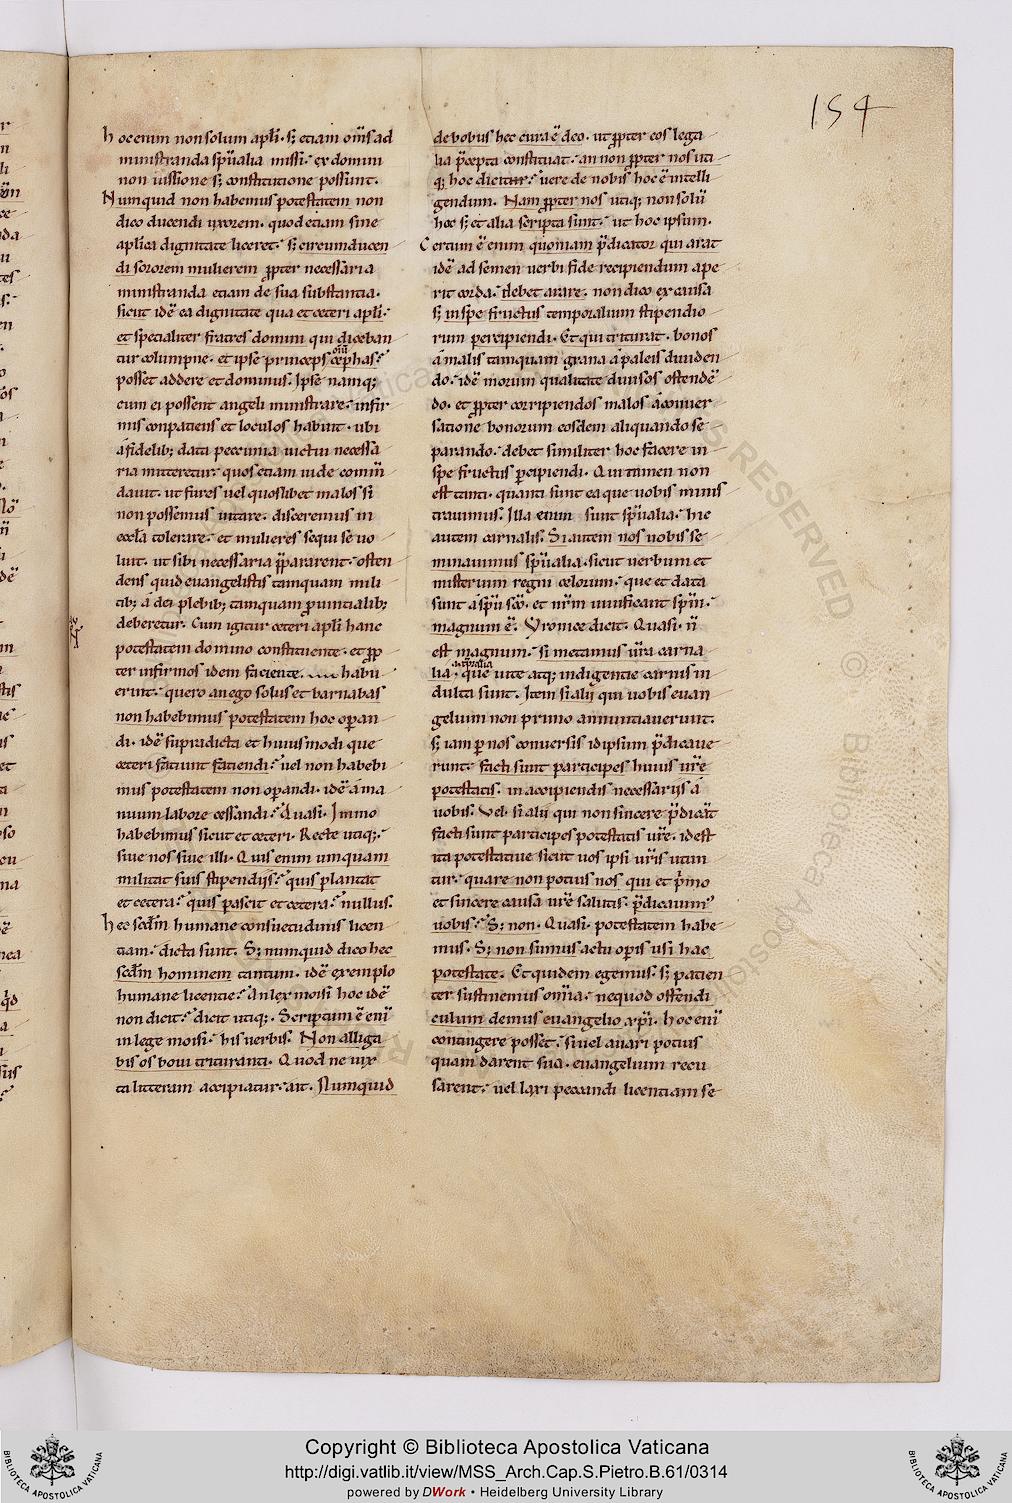 154
hoc enim non solum apłi· s; etiam om̄s ad
ministranda spūalia missi· ex domini
non iussione s; constitutione possunt.
Numquid non habemus potestatem non
dico ducendi uxorem· quod etiam sine
aplica dignitate liceret· s; circumducen
di sororem mulierem ꝓpter necessaria
ministranda etiam de sua substantia·
sicut idē ea dignitate qua et ceteri apłi·
et specialiter fratres domini qui diceban
tur columpne· et ipse princeps om̄ cephas·
posset addere et dominus. Ipse namq;
cum ei possent angeli ministrare· infir
mis conpatiens et loculos habuit· ubi
a fidelib; data pecunia uictui necessa
ria mitteretur· quos etiam iude com̄n
dauit· ut fures uel quoslibet malos si
non possemus uitare· disceremus in
eccła tolerare· et mulieres sequi se uo
luit· ut sibi necessaria p̄pararent· osten
dens quid euangelistis tamquam mili
tib; a dei plebib; tamquam prouintialib;
deberetur. Cum igitur ceteri apłi hanc
potestatem domino constituente· et ꝓp
ter infirmos idem faciente habu
erint· quero an ego solus et barnabas
non habebimus potestatem hoc operan
di· idē supradicta et huiusmodi que
ceteri fatiunt fatiendi· uel non habebi
mus potestatem non operandi· idē a ma
nuum labore cessandi· Quasi· Immo
habebimus sicut et ceteri· Recte utiq;·
siue nos siue illi· Quis enim umquam
militat suis stipendijs· quis plantat
et cetera· quis pascit et cetera· nullus.
hec scd̄m humane consuetudinis licen
tiam· dicta sunt. S; numquid dico hec
scd̄m hominem tantum· idē exemplo
humane licentie· An lex moisi hoc idē
non dicit· dicit utiq;· Scriptum ē eni
in lege moisi· his uerbis· Non alliga
bis os boui trituranti. Quod ne iux
ta litteram accipiatur· ait. Numquid
de bobus hec cura ē deo· ut ꝓpter eos lega
lia p̄cepta constituat· an non ꝓpter nos uti
q; hoc dicitur· uere de nobis hoc ē intelli
gendum. Nam ꝓpter nos utiq; non solū
hoc s; et alia scripta sunt· ut hoc ipsum.
Certum ē enim quoniam p̄dicator qui arat
idē ad semen uerbi fide recipiendum ape
rit corda· debet arare· non dico ex causa
s; in spe fructus temporalium stipendio
rum percipiendi· Et qui triturat· bonos
a malis tamquam grana a paleis diuiden
do· idē morum qualitate diuisos ostendē
do· et ꝓpter corripiendos malos a conuer
satione bonorum eosdem aliquando se
parando· debet similiter hoc facere in
spe fructus percipiendi· Qui tamen non
est tanti· quanti sunt ea que uobis minis
trauimus. Illa enim sunt spūalia· hic
autem carnalis. Si autem nos uobis se
minauimus spūalia· sicut uerbum et
misterium regni celorum· que et data
sunt a spū scō· et nr̄m uiuificant spm̄·
magnum ē· Yronice dicit· Quasi· n̄
est magnum· si metamus ur̄a carna
lia· que uite atq; indigentie carnis in
dulta sunt. Item si alij qui uobis euan
gelium non primo annuntiauerunt·
s; iam per nos conuersis id ipsum p̄dicaue
runt· facti sunt participes huius ur̄e
potestatis· in accipiendis necessarijs a
uobis· Vel· si alij qui non sincere p̄dicāt
facti sunt participes potestatis ur̄e· id est
ita potestatiue sicut uos ipsi ur̄is utun
tur· quare non potius nos qui et p̄mo
et sincere causa ur̄e salutis· p̄dicauim
uobis· S; non· Quasi· potestatem habe
mus· S; non sumus actu operis usi hac
potestate. Et quidem egemus· s; patien
ter sustinemus omīa· ne quod offendi
culum demus euangelio xpi· hoc eni
contingere posset· si uel auari potius
quam darent sua· euangelium recu
sarent· uel laxi peccandi licentiam se
Copyright © Biblioteca Apostolica Vaticana
http://digi.vatlib.it/view/MSS_Arch.Cap.S.Pietro.B.61/0314
powered by DWork • Heidelberg University Library
BIBLIOTECA APOSTOLICA VATICANA
BIBLIOTECA APOSTOLICA VATICANA